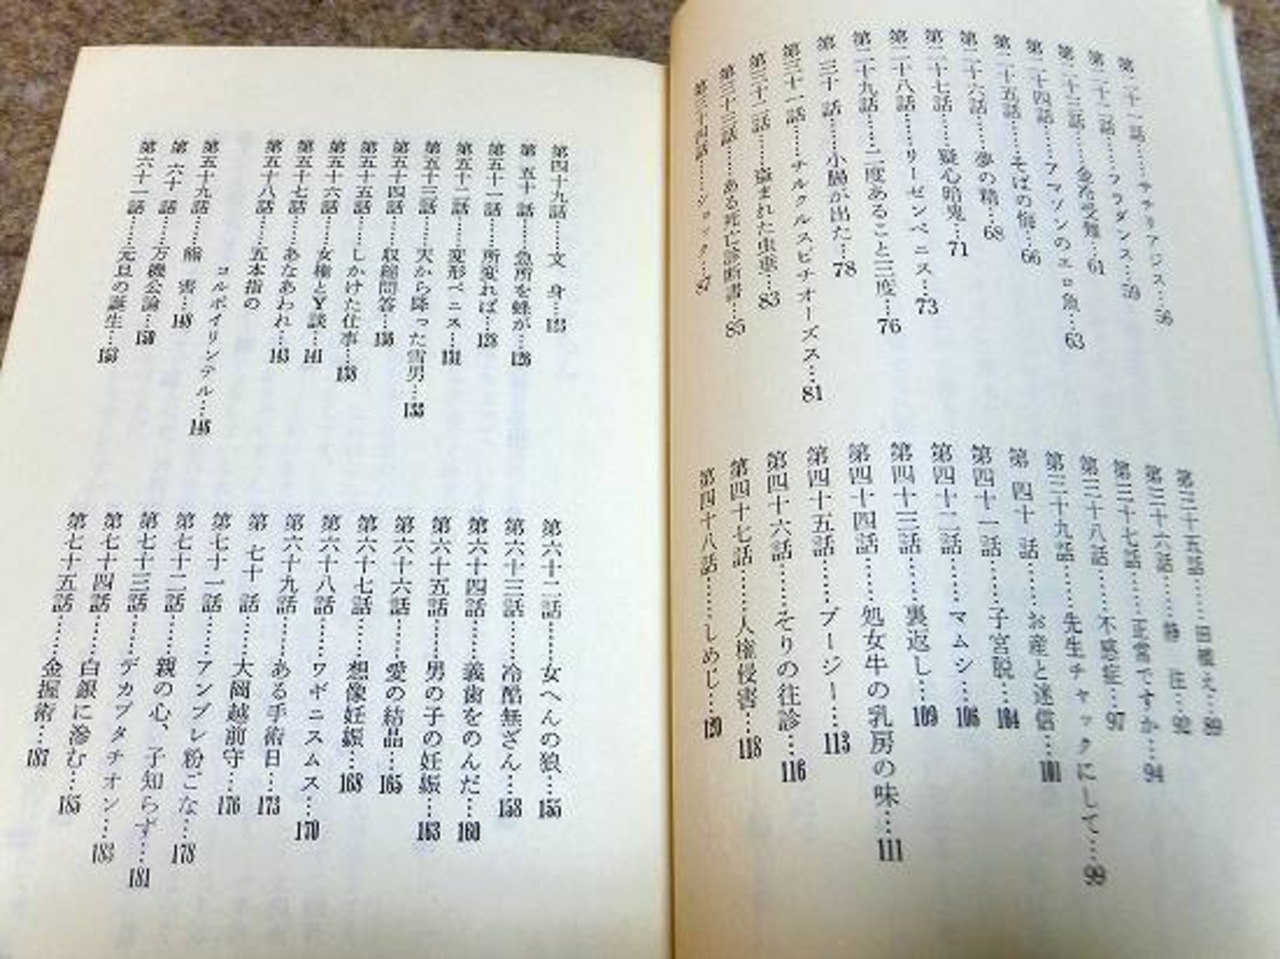 第二十一話……サチリアジス…56
第二十二話……フラダンス…59
第二十三話……金冷受難…61
第二十四話……アマゾンのエロ魚…63
第二十五話……そばの悔…66
第二十六話……夢の精…68
第二十七話……疑心暗鬼…71
第二十八話……リーゼンペニス…73
第二十九話……二度あること三度…76
第三十話……小腸が出た…78
第三十一話……チルクルスビチオーズス…81
第三十二話……盗まれた虫垂…83
第三十三話……ある死亡診断書…85
第三十四話……ショック…87
第三十五話……田植え…89
第三十六話……静注…92
第三十七話……正常ですか…94
第三十八話……不感症…97
第三十九話……先生チャックにして…99
第四十話……お産と迷信…101
第四十一話……子宮脱…104
第四十二話……マムシ…106
第四十三話……裏返し…109
第四十四話……処女牛の乳房の味…111
第四十五話……ブージー…113
第四十六話……そりの往診…116
第四十七話……人権侵害…118
第四十八話……しめじ…120
第四十九話……文身…123
第五十話……急所を蛙が…126
第五十一話……所変れば…128
第五十二話……変形ペニス…131
第五十三話……天から降った雪男…133
第五十四話……収縮問答…136
第五十五話……しかけた仕事…138
第五十六話……女権と¥談…141
第五十七話……あなあわれ…143
第五十八話……五本指の
コルポイリンテル…146
第五十九話……鶏害…148
第六十話……万機公論…150
第六十一話……元旦の誕生…153
第六十二話……女へんの狼…155
第六十三話……冷酷無ざん…158
第六十四話……義歯をのんだ…160
第六十五話……男の子の妊娠…163
第六十六話……愛の結晶…165
第六十七話……想像妊娠…168
第六十八話……ワギニスムス…170
第六十九話……ある手術日…173
第七十話……大岡越前守…176
第七十一話……アンプレ粉ごな…178
第七十二話……親の心、子知らず…181
第七十三話……デカプタチオン…183
第七十四話……白銀に滲む…185
第七十五話……金握術…187